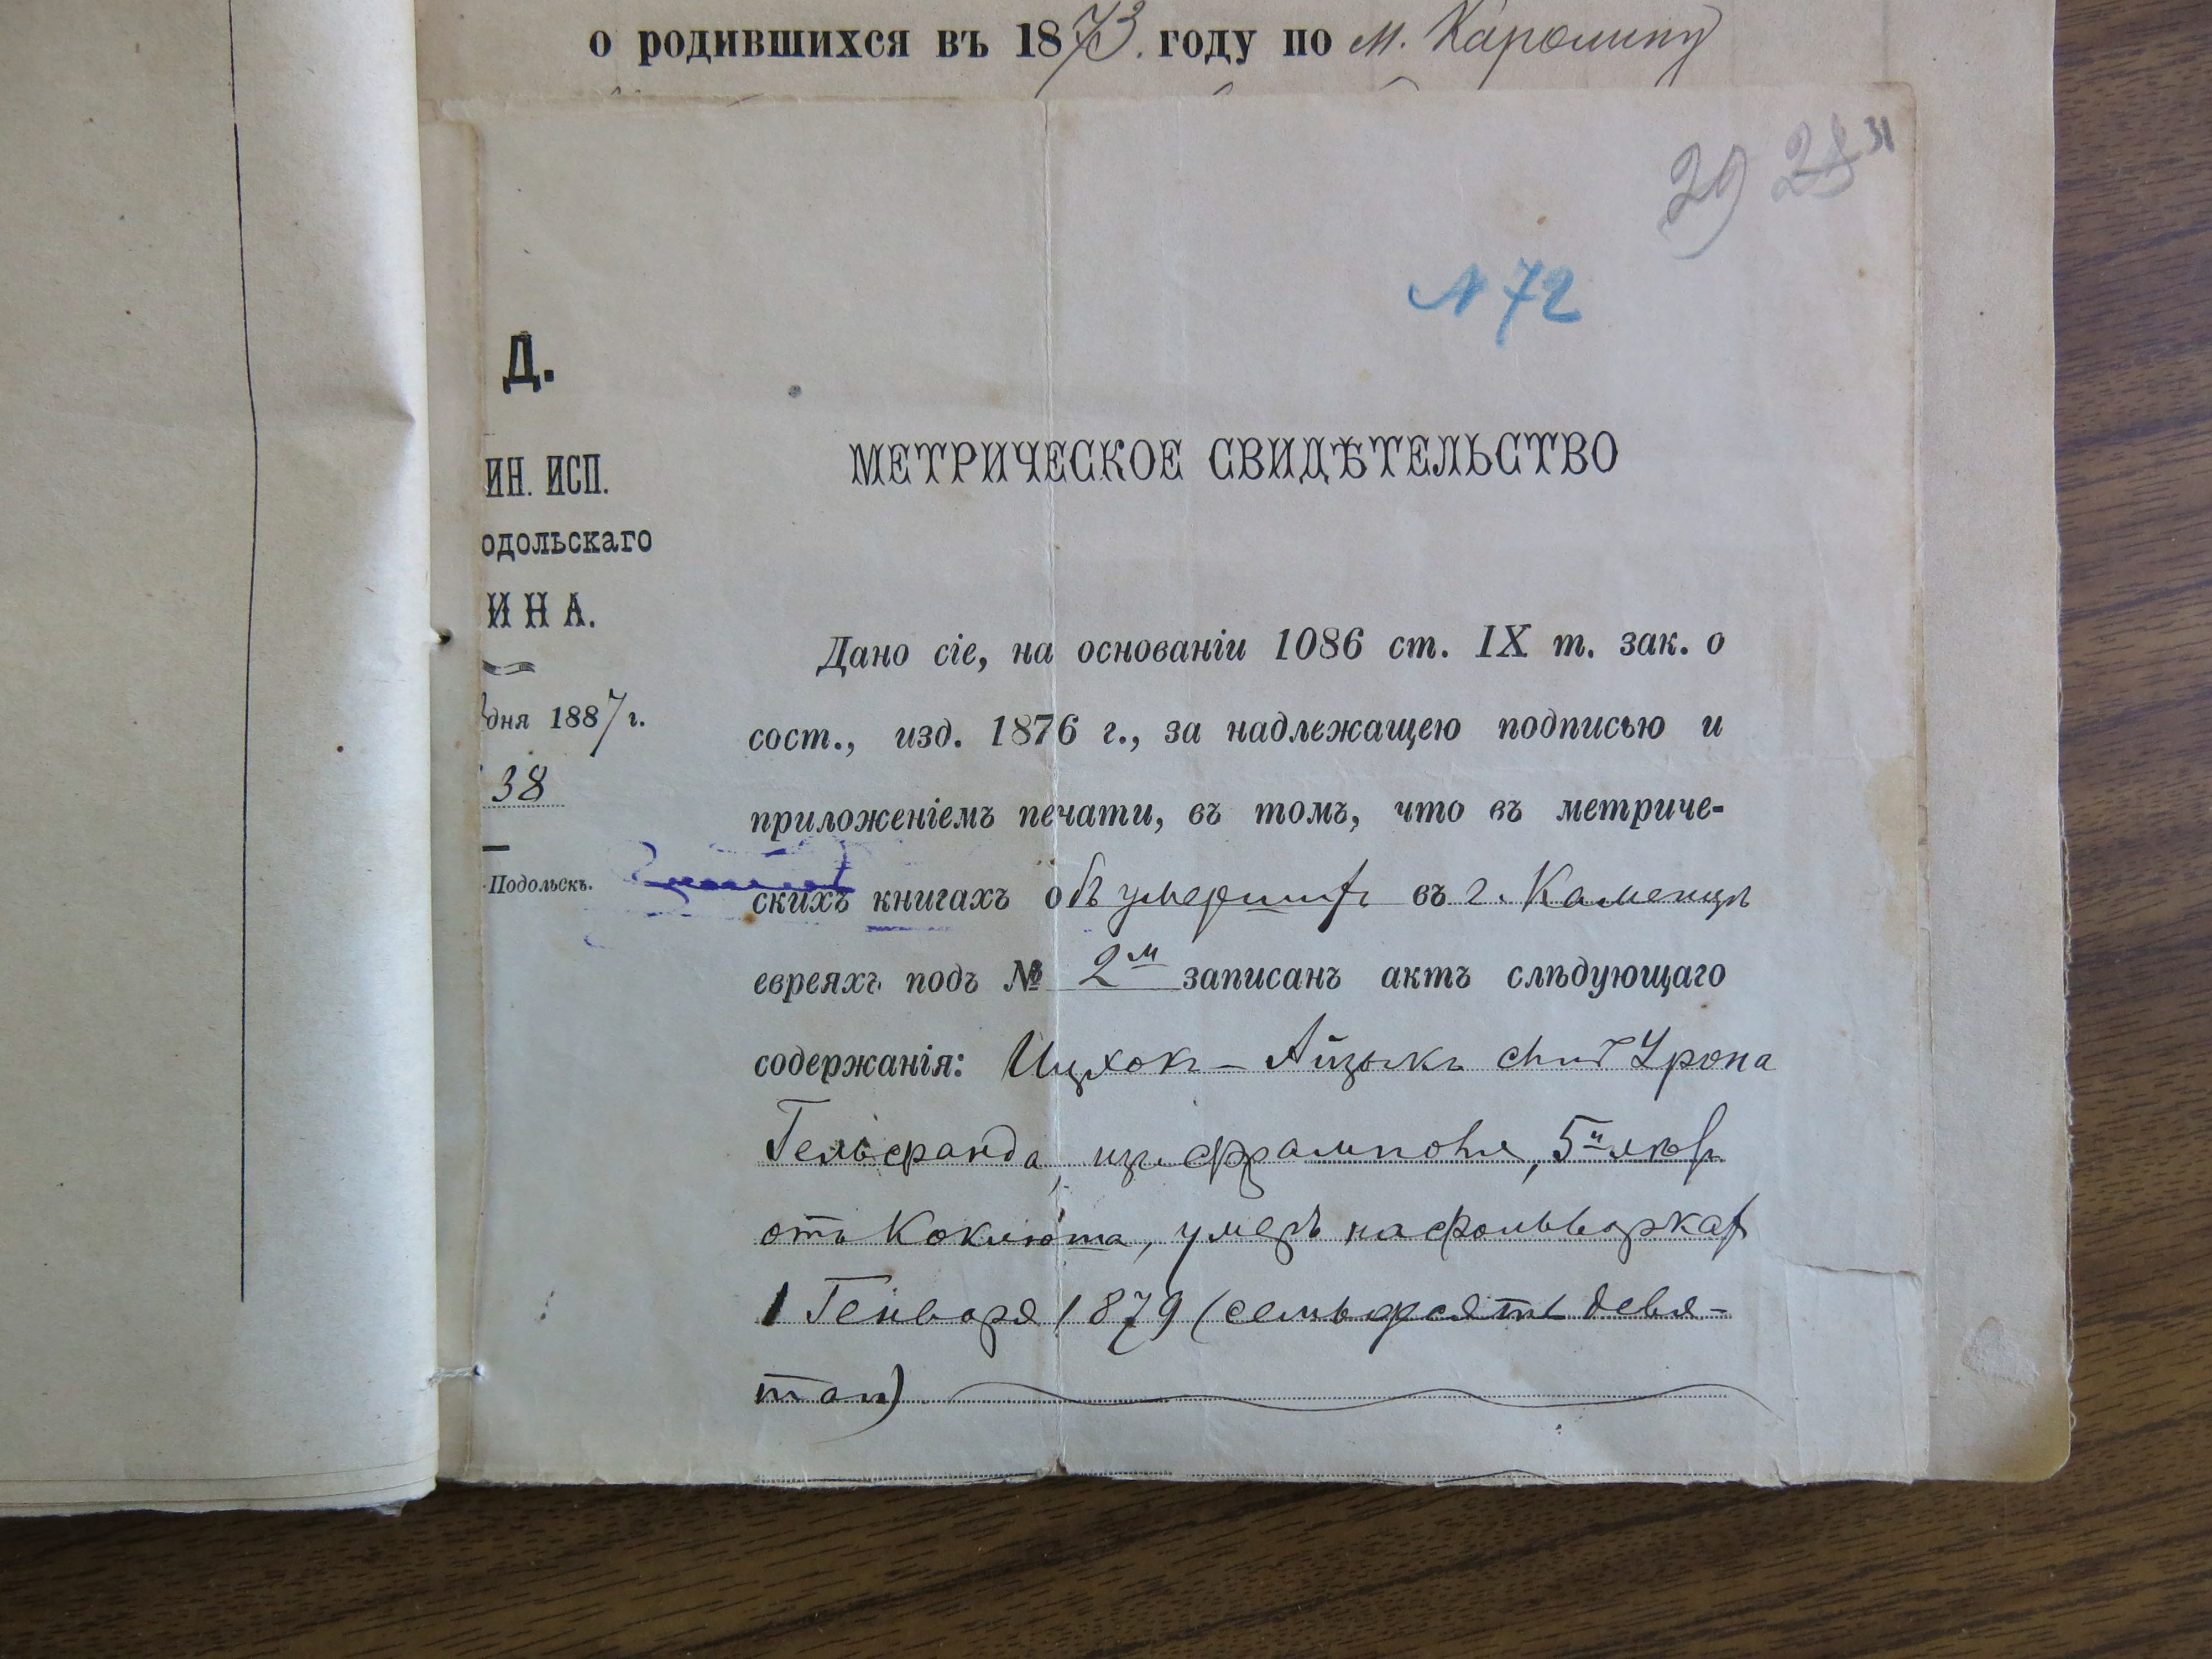 о родившихся въ 1873. году по м. Каролину
29 28 31
N 72
Д.
ИН. ИСП.
одольскаго
ИНА.
дня 1887 г.
38
Подольскъ.
МЕТРИЧЕСКОЕ СВИДѢТЕЛЬСТВО
Дано сіе, на основаніи 1086 ст. IX т. зак. о
сост., изд. 1876 г., за надлежащею подписью и
приложеніемъ печати, въ томъ, что въ метриче-
скихъ книгахъ объ умершихъ въ г. Каменцѣ
евреяхъ подъ № 2м записанъ актъ слѣдующаго
содержанія: Ицхокъ-Айзыкъ сынъ Урона
Гельфанда, изъ Фрамполя, 5и лѣтъ
отъ Коклюша, умеръ на фольваркахъ
1 Генваря 1879 (семьдесятъ девя-
таго)